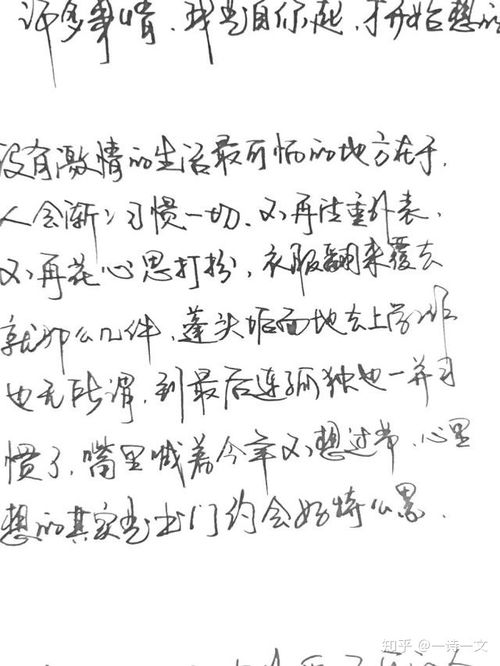 许多事情，我是自你起，才开始想的
没有激情的生活最可怕的地方在于，
人会渐渐习惯一切，不再注重外表，
不再花心思打扮，衣服翻来覆去
就那么几件，蓬头垢面地去上学上班
也无所谓，到最后连孤独也一并习
惯了，嘴里喊着今年不想过节，心里
想的其实是出门约会好特么累。
知乎 @一诗一文